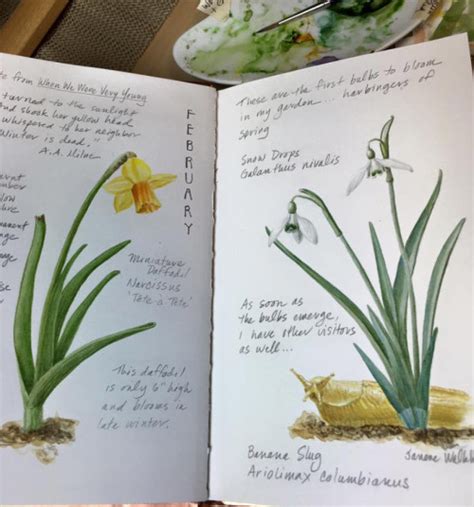 from When We Were Very Young
turned to the sunlight
And shook her yellow head
whispered to her neighbor
Winter is dead."
A.A. Milne
FEBRUARY
Miniature
Daffodil
Narcissus
'Tete à Tete'
This daffodil
is only 6" high
and blooms in
late winter.
These are the first bulbs to bloom
in my garden... harbingers of
spring
Snow Drops
Galanthus nivalis
As soon as
the bulbs emerge,
I have other visitors
as well...
Banana Slug
Ariolimax columbianus
Janene